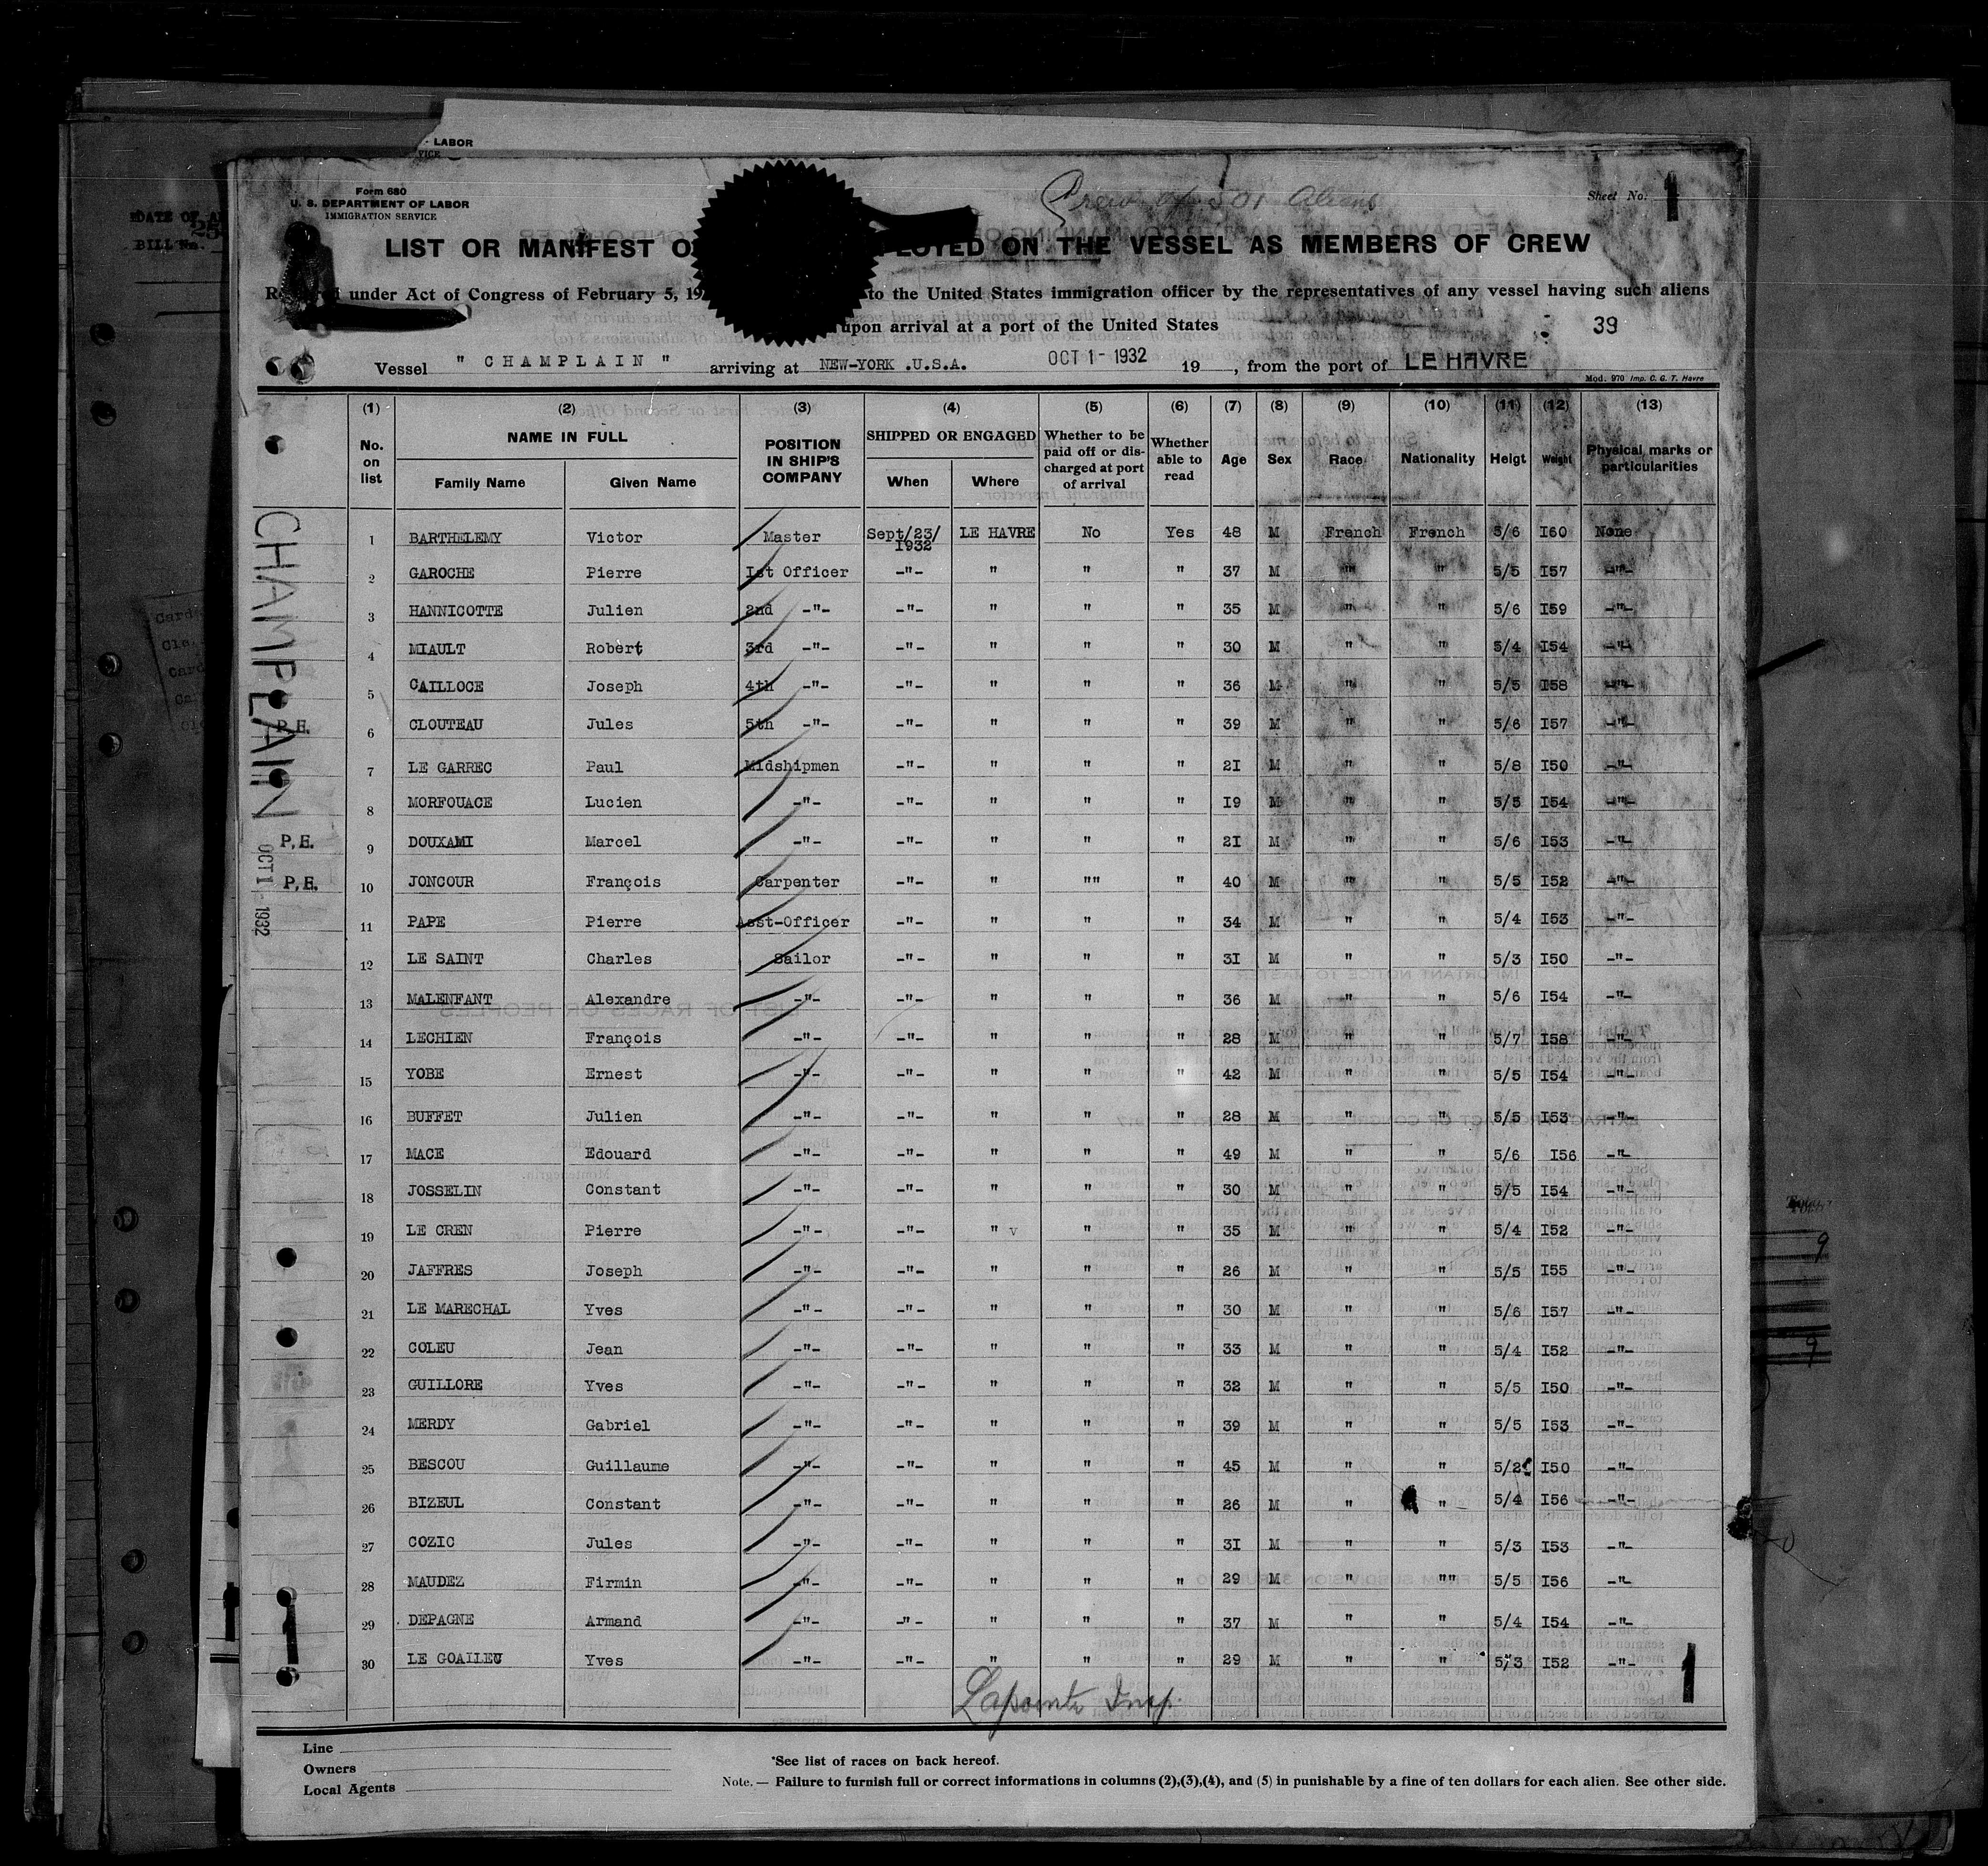 LABOR
VICE
Form 680
U. S. DEPARTMENT OF LABOR
IMMIGRATION SERVICE
Crew of 501 Aliens
Sheet No: 1
DATE OF
BILL No.
LIST OR MANIFEST O PLOYED ON THE VESSEL AS MEMBERS OF CREW
under Act of Congress of February 5, 19 to the United States immigration officer by the representatives of any vessel having such aliens
upon arrival at a port of the United States
39
Vessel " CHAMPLAIN " arriving at NEW-YORK .U.S.A. OCT 1 - 1932 19 , from the port of LE HAVRE
Mod. 970 Imp. C. G. T. Havre
(1) (2) (3) (4) (5) (6) (7) (8) (9) (10) (11) (12) (13)
No. on list NAME IN FULL Family Name Given Name POSITION IN SHIP'S COMPANY SHIPPED OR ENGAGED When Where Whether to be paid off or discharged at port of arrival Whether able to read Age Sex Race Nationality Heigt Weight Physical marks or particularities
CHAMPLAIN OCT 1 - 1932
1 BARTHELEMY Victor Master Sept/23/1932 LE HAVRE No Yes 48 M French French 5/6 I60 None
2 GAROCHE Pierre Ist Officer -"- " " " 37 M " " 5/5 I57 -"-
3 HANNICOTTE Julien 2nd -"- -"- " " " 35 M " " 5/6 I59 -"-
4 MIAULT Robert 3rd -"- -"- " " " 30 M " " 5/4 I54 -"-
5 CAILLOCE Joseph 4th -"- -"- " " " 36 M " " 5/5 I58 -"-
P.E. 6 CLOUTEAU Jules 5th -"- -"- " " " 39 M " " 5/6 I57 -"-
7 LE GARREC Paul Midshipmen -"- " " " 2I M " " 5/8 I50 -"-
8 MORFOUACE Lucien -"- -"- " " " I9 M " " 5/5 I54 -"-
P.E. 9 DOUXAMI Marcel -"- -"- " " " 2I M " " 5/6 I53 -"-
P.E. 10 JONCOUR François Carpenter -"- " "" " 40 M " " 5/5 I52 -"-
11 PAPE Pierre Asst-Officer -"- " " " 34 M " " 5/4 I53 -"-
12 LE SAINT Charles Sailor -"- " " " 3I M " " 5/3 I50 -"-
13 MALENFANT Alexandre -"- -"- " " " 36 M " " 5/6 I54 -"-
14 LECHIEN François -"- -"- " " " 28 M " " 5/7 I58 -"-
15 YOBE Ernest -"- -"- " " " 42 M " " 5/5 I54 -"-
16 BUFFET Julien -"- -"- " " " 28 M " " 5/5 I53 -"-
17 MACE Edouard -"- -"- " " " 49 M " " 5/6 I56 -"-
18 JOSSELIN Constant -"- -"- " " " 30 M " " 5/5 I54 -"-
19 LE CREN Pierre -"- -"- " v " " 35 M " " 5/4 I52 -"-
20 JAFFRES Joseph -"- -"- " " " 26 M " " 5/5 I55 -"-
21 LE MARECHAL Yves -"- -"- " " " 30 M " " 5/6 I57 -"-
22 COLEU Jean -"- -"- " " " 33 M " " 5/4 I52 -"-
23 GUILLORE Yves -"- -"- " " " 32 M " " 5/5 I50 -"-
24 MERDY Gabriel -"- -"- " " " 39 M " " 5/5 I53 -"-
25 BESCOU Guillaume -"- -"- " " " 45 M " " 5/2 I50 -"-
26 BIZEUL Constant -"- -"- " " " 26 M " " 5/4 I56 -"-
27 COZIC Jules -"- -"- " " " 3I M " " 5/3 I53 -"-
28 MAUDEZ Firmin -"- -"- " " " 29 M " "" 5/5 I56 -"-
29 DEPAGNE Armand -"- -"- " " " 37 M " " 5/4 I54 -"-
30 LE GOAILEU Yves -"- -"- " " " 29 M " " 5/3 I52 -"-
1
Lapointe Insp.
Line
Owners
Local Agents
*See list of races on back hereof.
Note. — Failure to furnish full or correct informations in columns (2),(3),(4), and (5) in punishable by a fine of ten dollars for each alien. See other side.